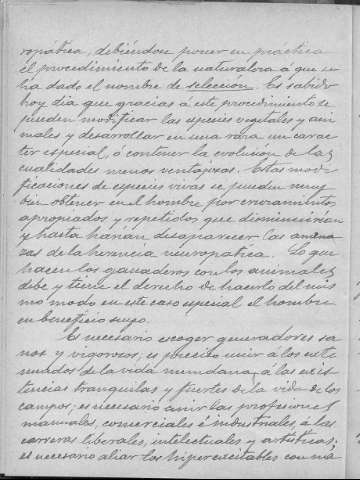 ropática, debiéndose poner en práctica
el procedimiento de la naturaleza á que se
ha dado el nombre de selección. Es sabido
hoy dia que gracias á este procedimiento se
pueden modificar las especies vegetales y ani
males y desarrollar en una raza un carac
ter especial, ó contener la evolución de las
cualidades menos ventajosas. Estas modi
ficaciones de especies vivas se pueden muy
bien obtener en el hombre por cruzamientos
apropiados y repetidos que disminuirian
y hasta harian desaparecer las amena
zas de la herencia neuropática. Lo que
hacen los ganaderos con los animales
debe y tiene el derecho de hacerlo del mis
mo modo en este caso especial el hombre
en beneficio suyo.
Es necesario escoger generadores sa
nos y vigorosos, es preciso unir á los exte
nuados de la vida mundana, á las exis
tencias tranquilas y fuertes de la vida de los
campos, es necesario unir las profesiones
manuales, comerciales é industriales, á las
carreras liberales, intelectuales y artísticas;
es necesario aliar los hiperexcitables con na